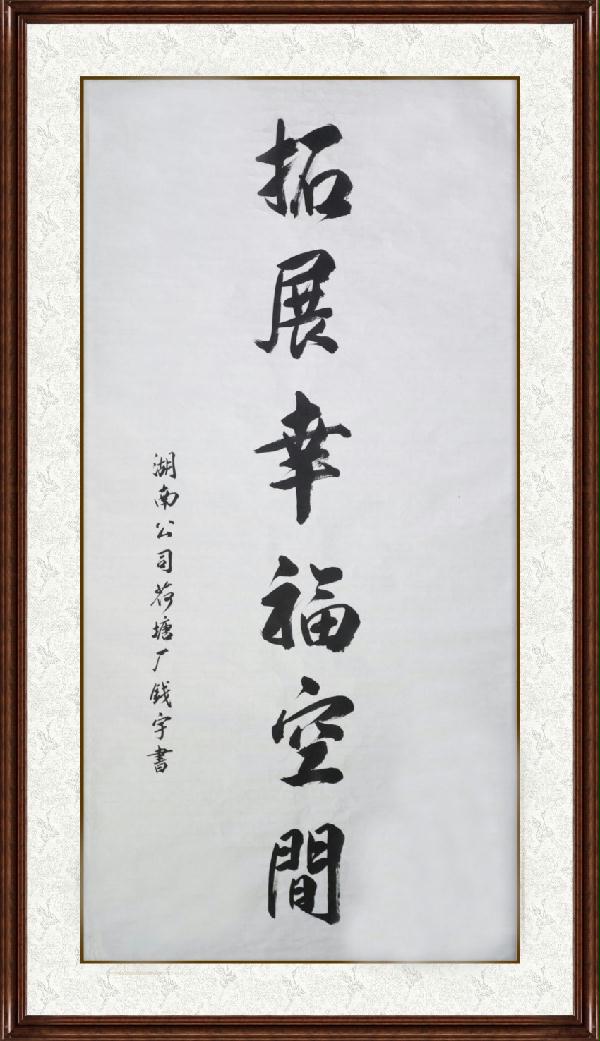 拓展幸福空間
湖南公司荷塘厂錢宇書